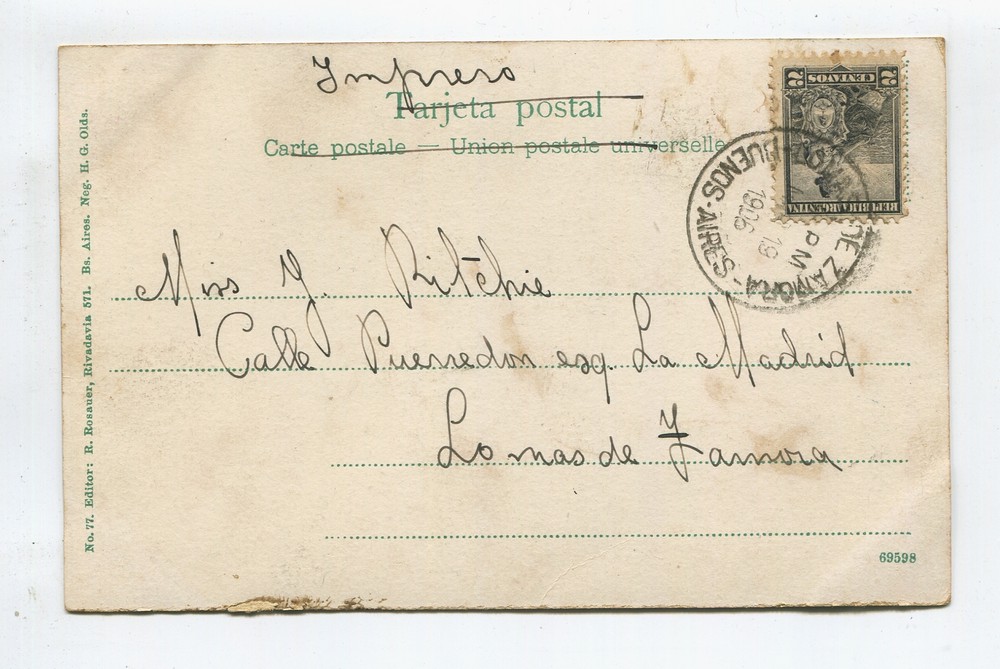 Impreso
Tarjeta postal
Carte postale — Union postale universelle
2 CENTAVOS 2
REPUBLICA ARGENTINA
DE ZAMORA - BUENOS-AIRES-
19 PM
1906
Miss Y. Ritchie
Calle Pueyrredon esq. La Madrid
Lomas de Zamora
69598
No. 77. Editor: R. Rosauer, Rivadavia 571. Bs. Aires. Neg. H. G. Olds.